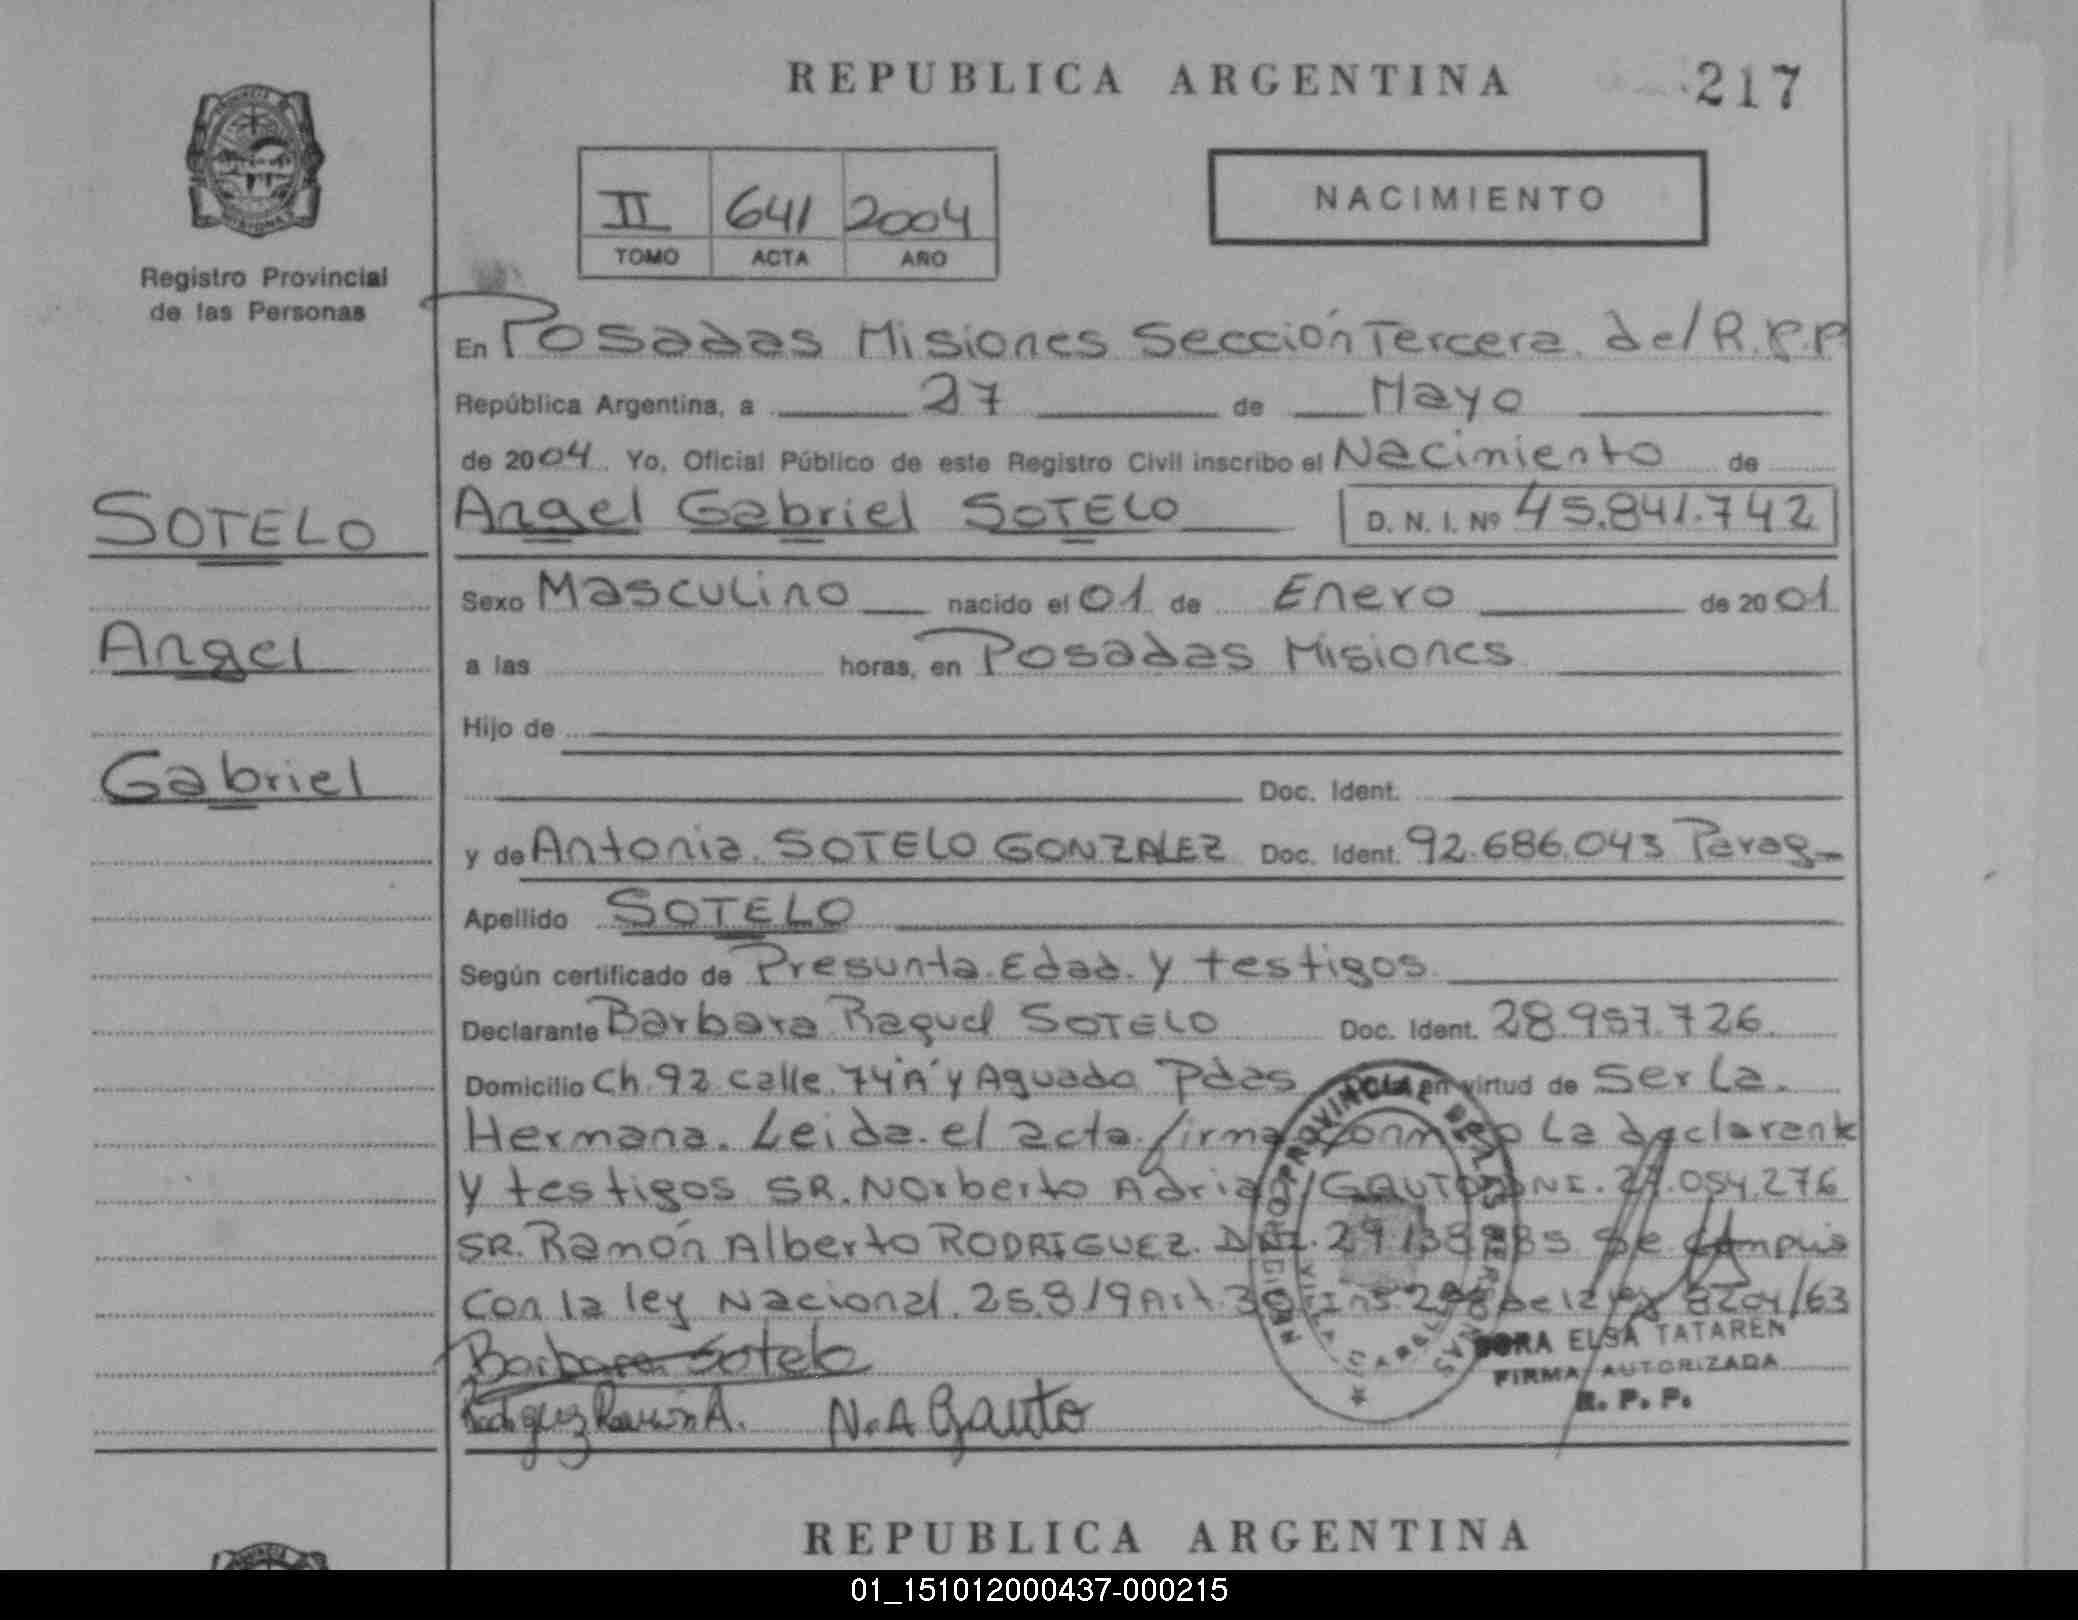 REPUBLICA ARGENTINA 217
II 641 2004
TOMO ACTA AÑO
NACIMIENTO
Registro Provincial
de las Personas
En Posadas Misiones Sección Tercera del R.P.P
República Argentina, a 27 de Mayo
de 2004. Yo, Oficial Público de este Registro Civil inscribo el Nacimiento de
SOTELO
Angel Gabriel SOTELO D. N. I. Nº 45.841.742
Sexo Masculino nacido el 01 de Enero de 2001
Angel
a las horas, en Posadas Misiones
Hijo de
Gabriel
Doc. Ident.
y de Antonia SOTELO GONZALEZ Doc. Ident. 92.686.043 Parag
Apellido SOTELO
Según certificado de Presunta Edad y testigos
Declarante Barbara Raquel SOTELO Doc. Ident. 28.957.726
Domicilio Ch. 92 calle 74"A" y Aguado Pdas en virtud de Ser La
Hermana. Leida el acta firma conmigo La declarante
y testigos SR. Norberto Adrian GAUTO DNI. 27.054.276
SR. Ramón Alberto RODRIGUEZ. DNI. 29
Con la ley Nacional 25.819 Art. 8204/63
Barbara Sotelo
Rodriguez Ramón A. N.A Gauto
DORA ELSA TATAREN
FIRMA AUTORIZADA
R. P. P.
REPUBLICA ARGENTINA
01_151012000437-000215